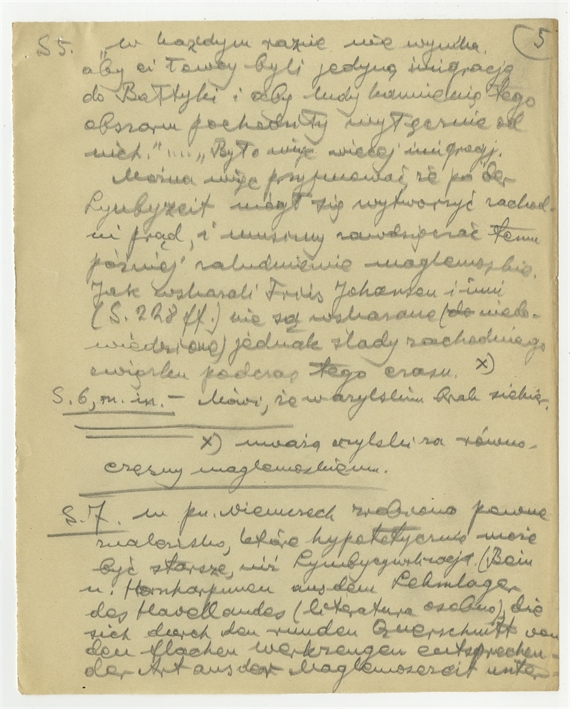 5
S 5. "W każdym razie nie wynika,
aby ci łowcy byli jedyną imigracją
do Bałtyki i aby ludy kamienia tego
obszaru pochodziły wyłącznie od
nich." .... "Było więc więcej imigracji.
Można więc przyjmować, że po der
Lyngbyzeit mógł się wytworzyć zachod-
ni prąd, i musimy zawdzięczać temu
później zaludnienie maglemoskie.
Jak wskazali Friis Johansen i inni
(S. 228 ff.) nie są wskazane (do niedo-
wiedzione) jednak ślady zachodniego
związku podczas tego czasu. x)
S. 6, m. in. – Mówi, że w azylskim brak siekier.
x) uważa azylski za równo-
czesny maglemoskiemu.
S. 7. W pn. Niemczech zrobiono pewne
znalezisko, które hypotetycznie może
być starsze, niż Lyngby (Bein
u. Hornharpunen aus dem Lehmlager
des Havellandes (literatura osobno), die
sich durch den runden Querschnitt von
den flachen Werkzeugen entsprechen-
der Art aus der Maglemosezeit unter-